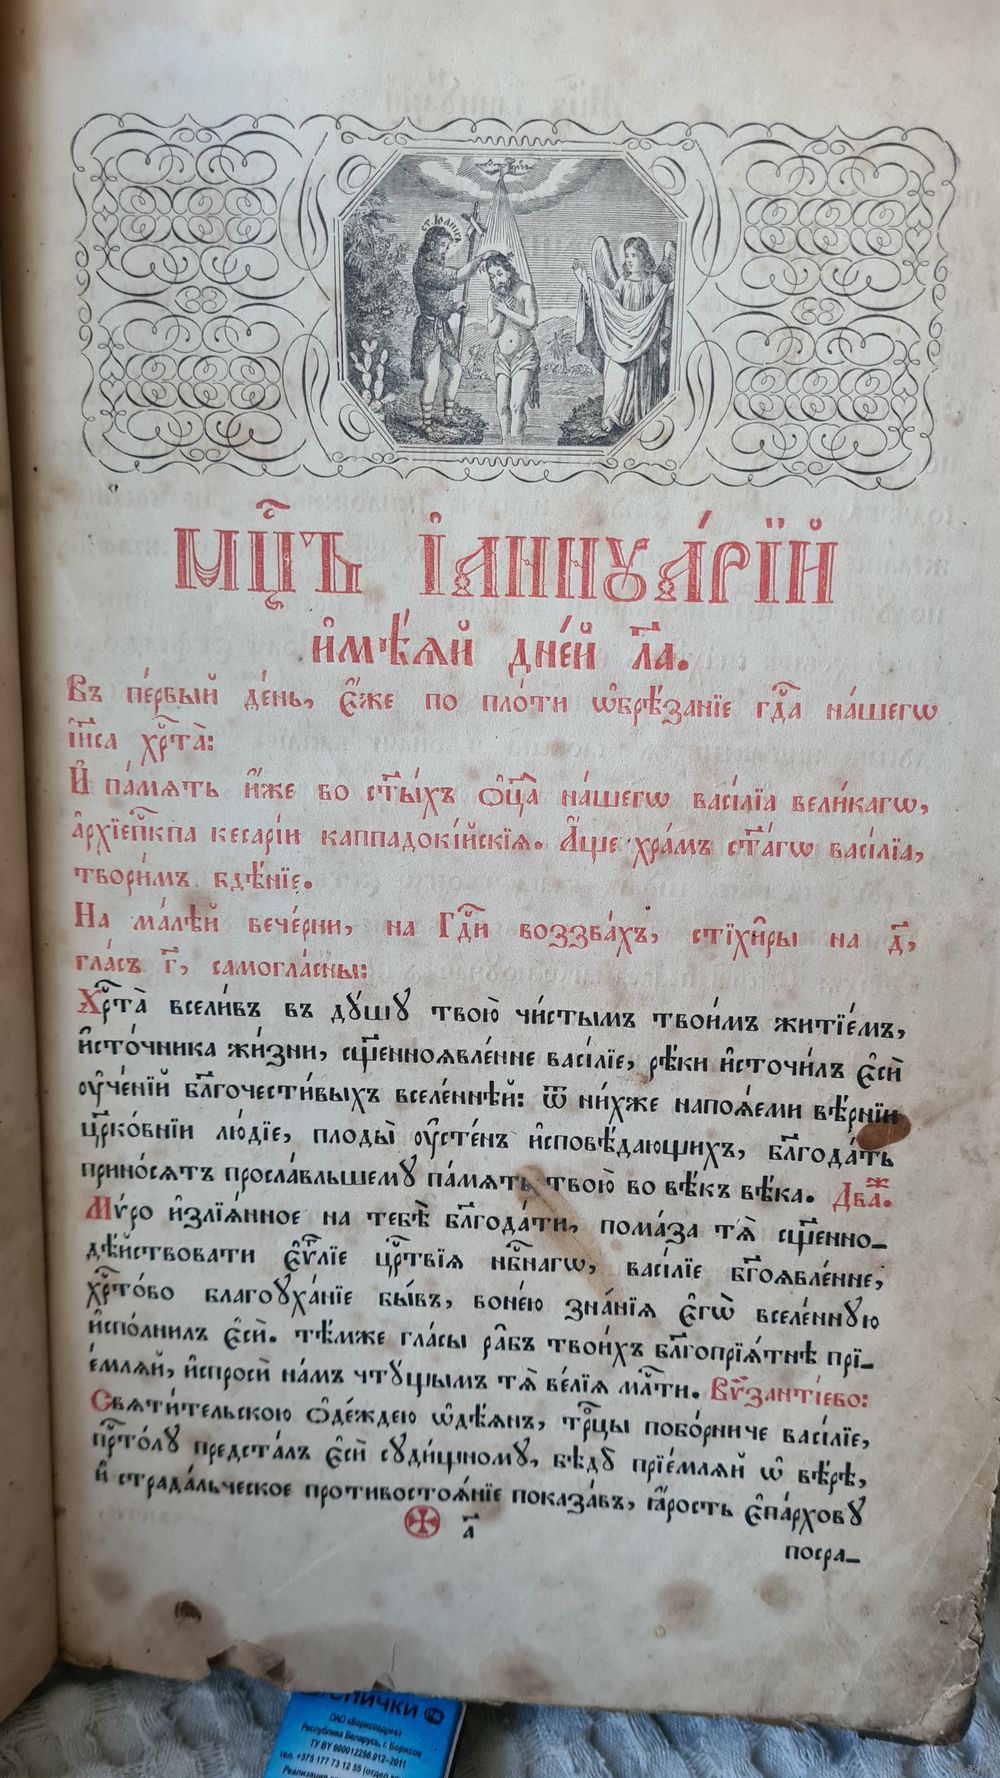 ст. Іоаннъ
МЦ҇Ъ І҆АННꙋА́РЇЙ
и҆мѣ́ѧй дне́й л҃а.
Въ пе́рвый де́нь, є҆́же по пло́ти ѡ҆брѣ́занїе гдⷭ҇а на́шегѡ
і҆и҃са хрⷭ҇та̀:
И҆ па́мѧть и҆́же во ст҃ы́хъ ѻ҆ц҃а̀ на́шегѡ васі́лїа вели́кагѡ,
а҆рхїепⷭ҇кпа кесарі́и каппадокі́йскїѧ. А҆́ще хра́мъ ст҃а́гѡ васі́лїа,
твори́мъ бдѣ́нїе.
На ма́лѣй вече́рни, на Гдⷭ҇и воззва́хъ, стїхи̑ры на д҃,
гла́съ г҃, самогла́сны:
Хрⷭ҇та̀ всели́въ въ дꙋ́шꙋ твою̀ чи́стымъ твои́мъ житїе́мъ,
и҆сто́чника жи́зни, сщ҃енноѧвле́нне васі́лїе, рѣ́ки и҆сточи́лъ є҆сѝ
ᲂу҆че́нїй бл҃гочести́выхъ вселе́ннѣй: ѿ ни́хже напоѧ́еми вѣ́рнїи
цр҃ко́внїи лю́дїе, плоды̀ ᲂу҆сте́нъ и҆сповѣ́дающихъ, бл҃года́ть
прино́сѧтъ просла́вльшемꙋ па́мѧть твою̀ во вѣ́къ вѣ́ка. Два́ж.
Мѵ́ро и҆злїѧ́нное на тебѣ̀ бл҃года́ти, пома́за тѧ̀ сщ҃енно-
дѣ́йствовати є҆ѵⷢ҇лїе црⷭ҇твїѧ нбⷭ҇нагѡ, васі́лїе бг҃оѧвле́нне,
хрⷭ҇то́во благоꙋха́нїе бы́въ, воне́ю зна́нїѧ є҆гѡ̀ вселе́ннꙋю
и҆спо́лнилъ є҆сѝ. тѣ́мже гла́сы ра̑бъ твои́хъ бл҃гопрїѧ́тнѣ прї-
е́млѧй, и҆спросѝ на́мъ чтꙋ́щымъ тѧ̀ ве́лїѧ млⷭ҇ти. Вѷзанті́ево:
Свѧти́тельскою ѻ҆де́ждею ѡ҆дѣ́ѧнъ, трⷪ҇цы побо́рниче васі́лїе,
прⷭ҇то́лꙋ предста́лъ є҆сѝ сꙋди́щномꙋ, бѣ́дꙋ прїе́млѧй ѡ҆ вѣ́рѣ,
и҆ страда́льческое противостоѧ́нїе показа́въ, ꙗ҆́рость є҆па́рховꙋ
а҃
посра-
СПИЧКИ
ОАО «Борисовдрев»
Республика Беларусь, г. Борисов
ТУ BY 600012256.012-2011
тел. +375 177 73 12 55 (отдел
Реализация